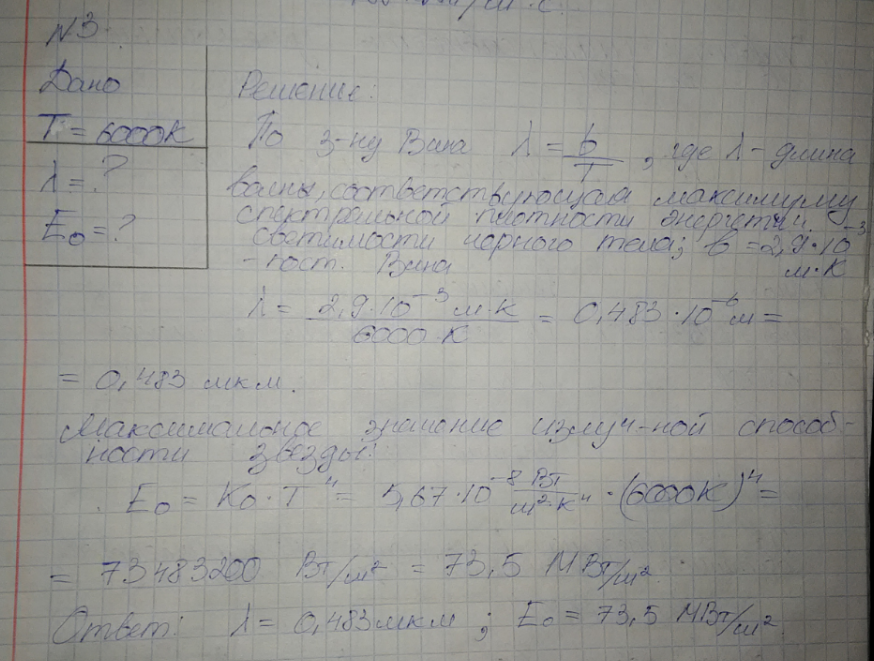 N3
Дано
T = 6000К
λ = ?
E₀ = ?
Решение:
По з-ну Вина λ = b/T, где λ - длина
волны, соответствующая максимуму
спектральной плотности энергетич.
светимости чорного тела; b = 2,9·10⁻³
м·К
- пост. Вина
λ = 2,9·10⁻³ м·К / 6000·К = 0,483·10⁻⁶ м =
= 0,483 мкм.
Максимальное значение излуч-ной способ-
ности звезды:
E₀ = K₀·T⁴ = 5,67·10⁻⁸ Вт/м²·К⁴ · (6000К)⁴ =
= 73483200 Вт/м² = 73,5 МВт/м²
Ответ: λ = 0,483мкм ; E₀ = 73,5 МВт/м²